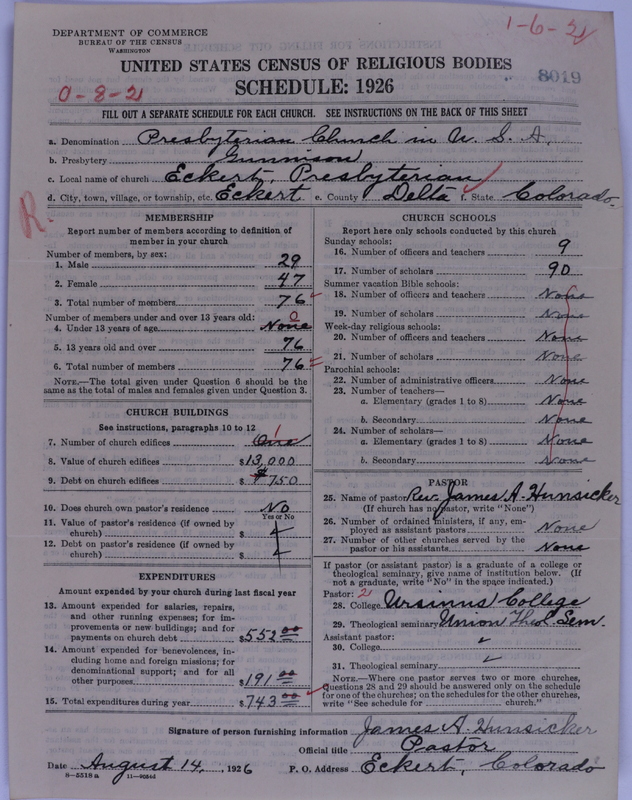 DEPARTMENT OF COMMERCE
BUREAU OF THE CENSUS
WASHINGTON
1-6-21
UNITED STATES CENSUS OF RELIGIOUS BODIES
8019
0-8-21
SCHEDULE: 1926
FILL OUT A SEPARATE SCHEDULE FOR EACH CHURCH. SEE INSTRUCTIONS ON THE BACK OF THIS SHEET
a. Denomination Presbyterian Church in U. S. A.
b. Presbytery Gunnison
c. Local name of church Eckert, Presbyterian
d. City, town, village, or township, etc. Eckert e. County Delta f. State Colorado.
R.
MEMBERSHIP
Report number of members according to definition of
member in your church
Number of members, by sex:
1. Male 29
2. Female 47
3. Total number of members 76
Number of members under and over 13 years old: 0
4. Under 13 years of age None
5. 13 years old and over 76
6. Total number of members 76
NOTE.—The total given under Question 6 should be the
same as the total of males and females given under Question 3.
CHURCH BUILDINGS
See instructions, paragraphs 10 to 12
7. Number of church edifices One 1
8. Value of church edifices $13,000
9. Debt on church edifices $750
10. Does church own pastor's residence No
Yes or No
11. Value of pastor's residence (if owned by
church) $
12. Debt on pastor's residence (if owned by
church) $
EXPENDITURES
Amount expended by your church during last fiscal year
13. Amount expended for salaries, repairs,
and other running expenses; for im-
provements or new buildings; and for
payments on church debt $552 00
14. Amount expended for benevolences, in-
cluding home and foreign missions; for
denominational support; and for all
other purposes $191 00
15. Total expenditures during year $743 00
CHURCH SCHOOLS
Report here only schools conducted by this church
Sunday schools:
16. Number of officers and teachers 9
17. Number of scholars 90
Summer vacation Bible schools:
18. Number of officers and teachers None
19. Number of scholars None
Week-day religious schools:
20. Number of officers and teachers None
21. Number of scholars None
Parochial schools:
22. Number of administrative officers None
23. Number of teachers—
a. Elementary (grades 1 to 8) None
b. Secondary None
24. Number of scholars—
a. Elementary (grades 1 to 8) None
b. Secondary None
PASTOR
25. Name of pastor Rev. James A. Hunsicker
(If church has no pastor, write "None")
26. Number of ordained ministers, if any, em-
ployed as assistant pastors None
27. Number of other churches served by the
pastor or his assistants None
If pastor (or assistant pastor) is a graduate of a college or
theological seminary, give name of institution below. (If
not a graduate, write "No" in the space indicated.)
Pastor: 2
28. College Ursinus College
29. Theological seminary Union Theol. Sem.
Assistant pastor:
30. College
31. Theological seminary
NOTE.—Where one pastor serves two or more churches,
Questions 28 and 29 should be answered only on the schedule
for one of the churches; on the schedules for the other churches,
write "See schedule for church."
Signature of person furnishing information James A. Hunsicker
Official title Pastor
Date August 14, 1926 P. O. Address Eckert, Colorado
8—5518a 11—90544